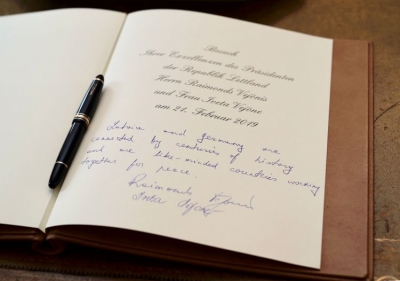 Besuch
Ihrer Exzellenzen des Präsidenten
der Republik Lettland
Herrn Raimonds Vējonis
und Frau Iveta Vējone
am 21. Februar 2019
Latvia and Germany are
connected by centuries of history
and are like-minded countries working
together for peace.
Raimonds Vējonis
Iveta